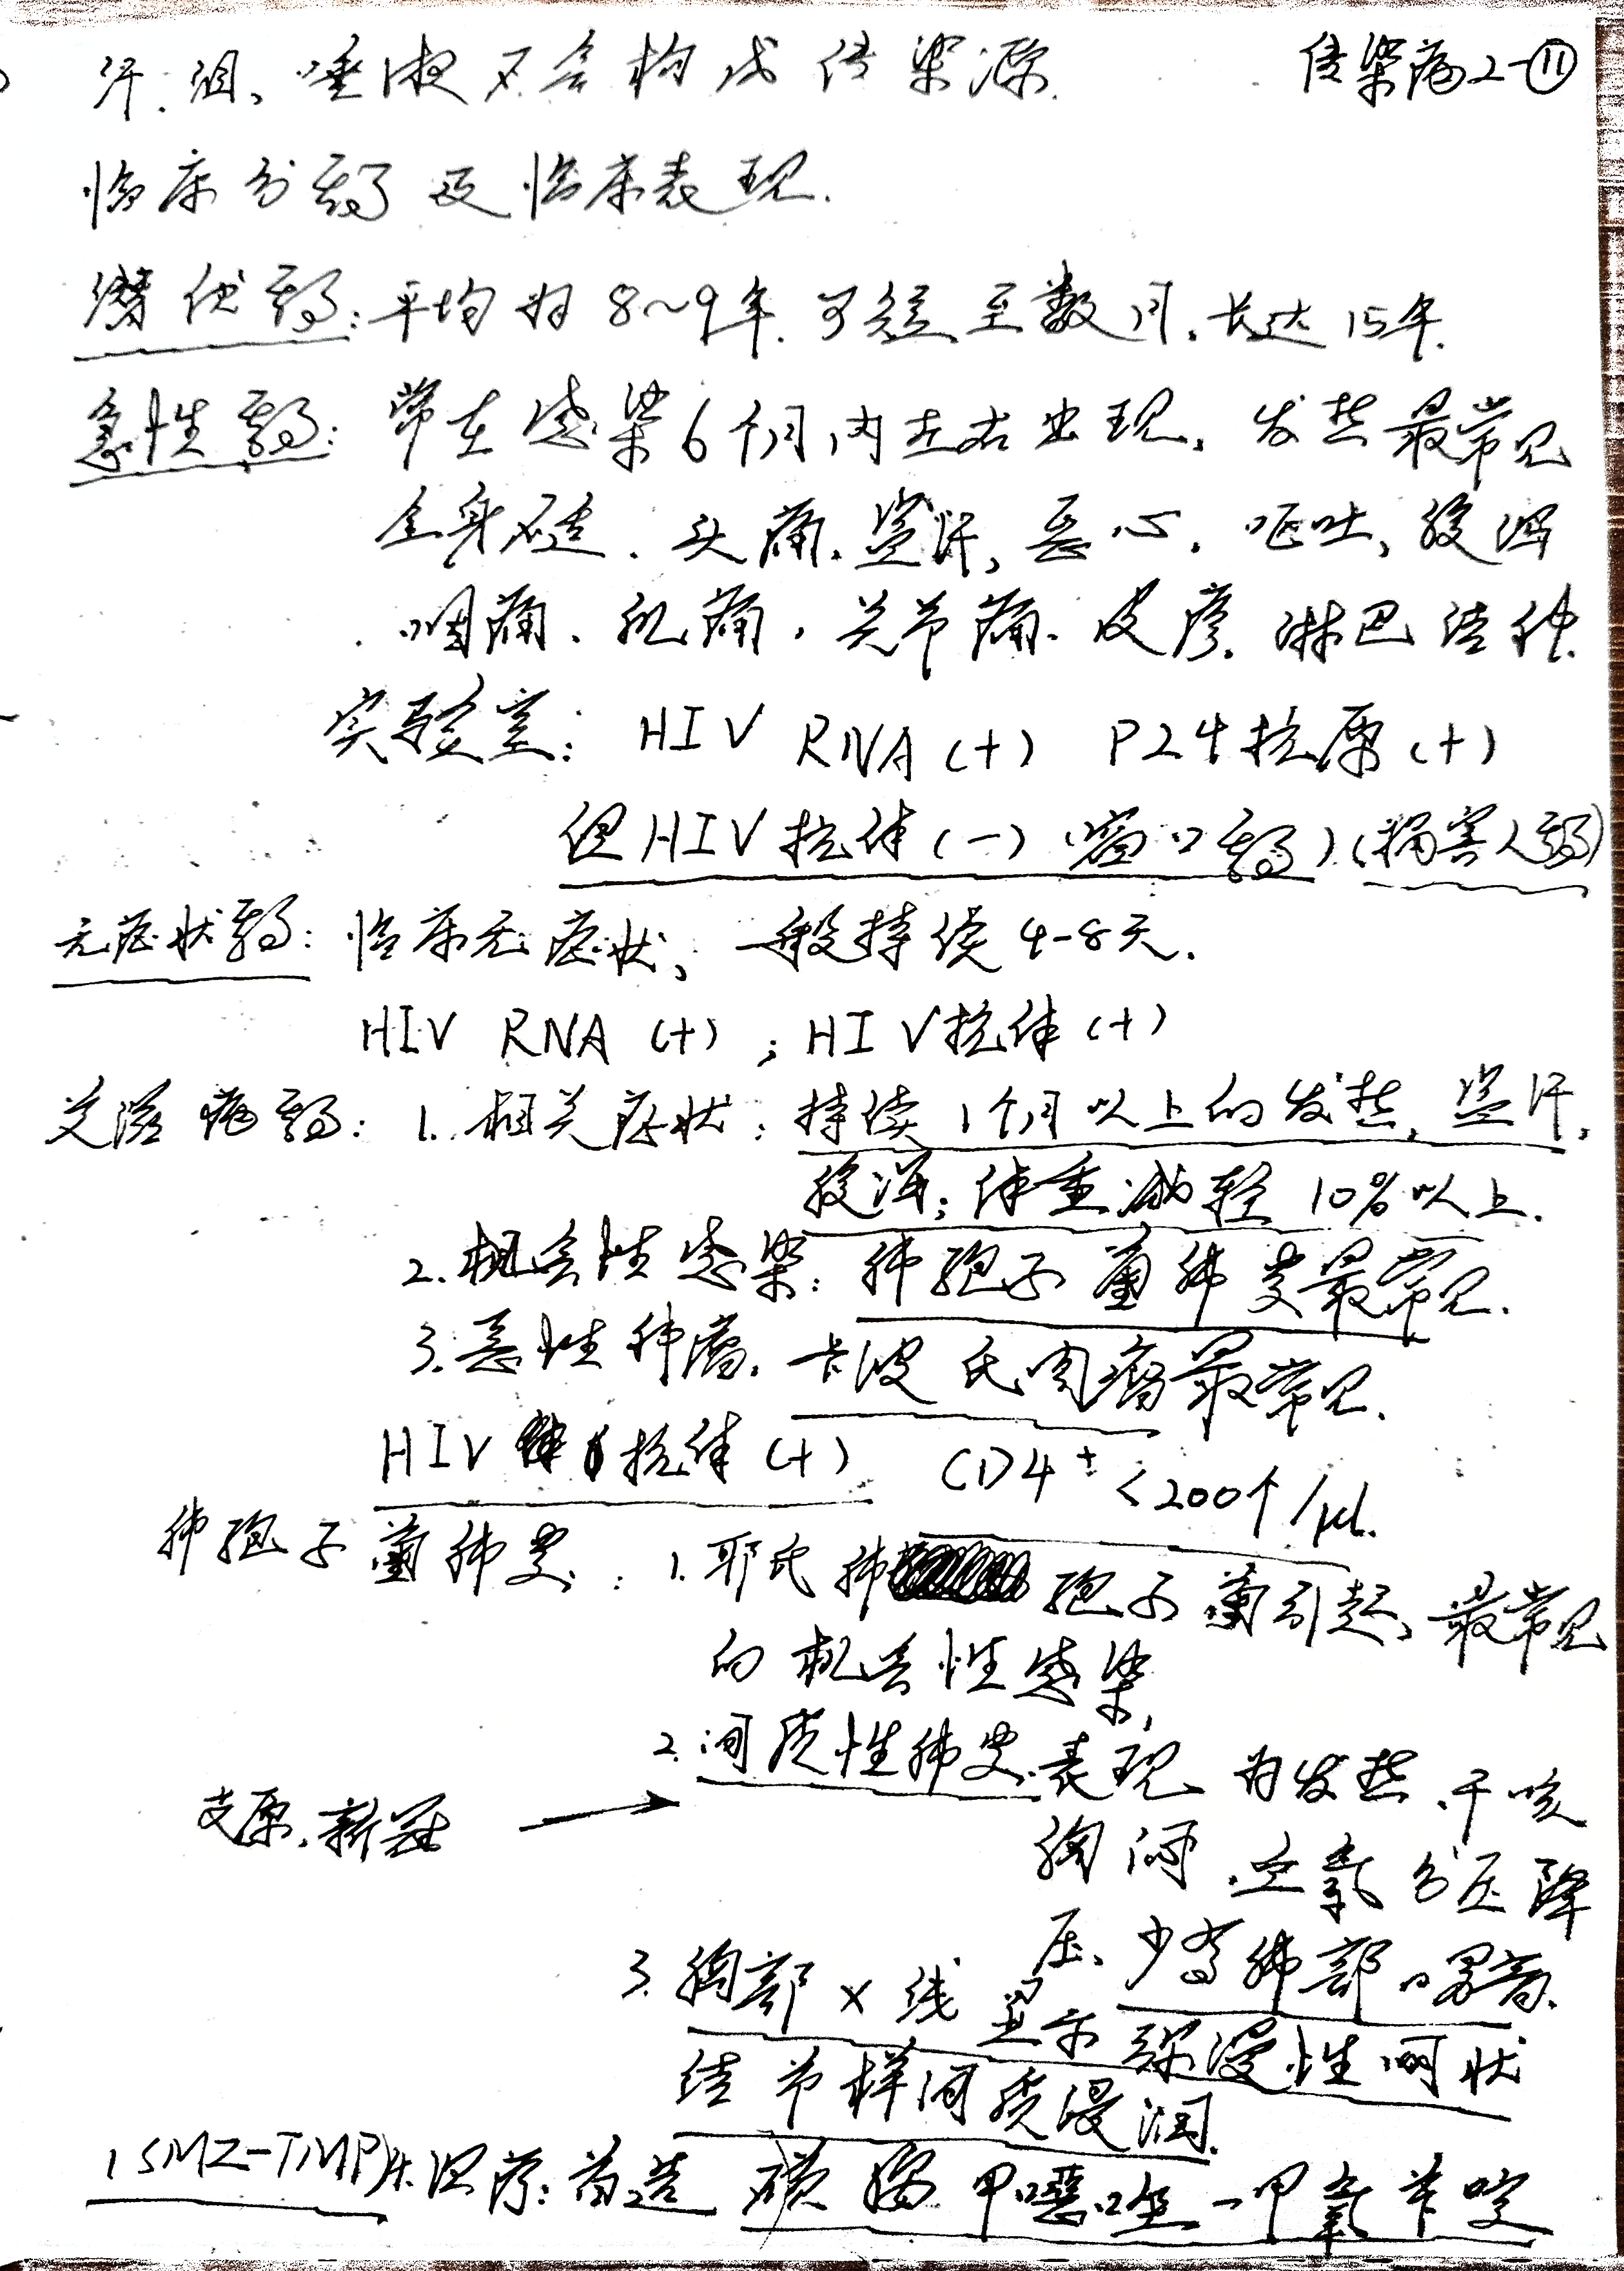 汗、泪、唾液不会构成传染源. 传染病2-⑪
临床分期及临床表现.
潜伏期:平均为8~9年.可短至数月.长达15年.
急性期:常在感染6个月内左右出现,发热最常见
全身不适.头痛.盗汗,恶心.呕吐,腹泻
.咽痛.肌痛,关节痛.皮疹.淋巴结肿.
实验室:HIV RNA(+) P24抗原(+)
但HIV抗体(-)(窗口期)(祸害人期)
无症状期:临床无症状,一般持续4-8天.
HIV RNA(+);HIV抗体(+)
艾滋病期:1.相关症状:持续1个月以上的发热,盗汗,
腹泻;体重减轻10%以上.
2.机会性感染:肺孢子菌肺炎最常见.
3.恶性肿瘤.卡波氏肉瘤最常见.
HIV抗体(+) CD4⁺<200个/μl.
肺孢子菌肺炎:1.耶氏肺孢子菌引起,最常见
的机会性感染,
2.间质性肺炎.表现为发热.干咳
支原.新冠 →
胸闷.立氧分压降
压、少有肺部啰音.
3.胸部X线显示弥漫性网状
结节样间质浸润.
(SMZ-TMP)1.治疗:首选磺胺甲噁唑-甲氧苄啶